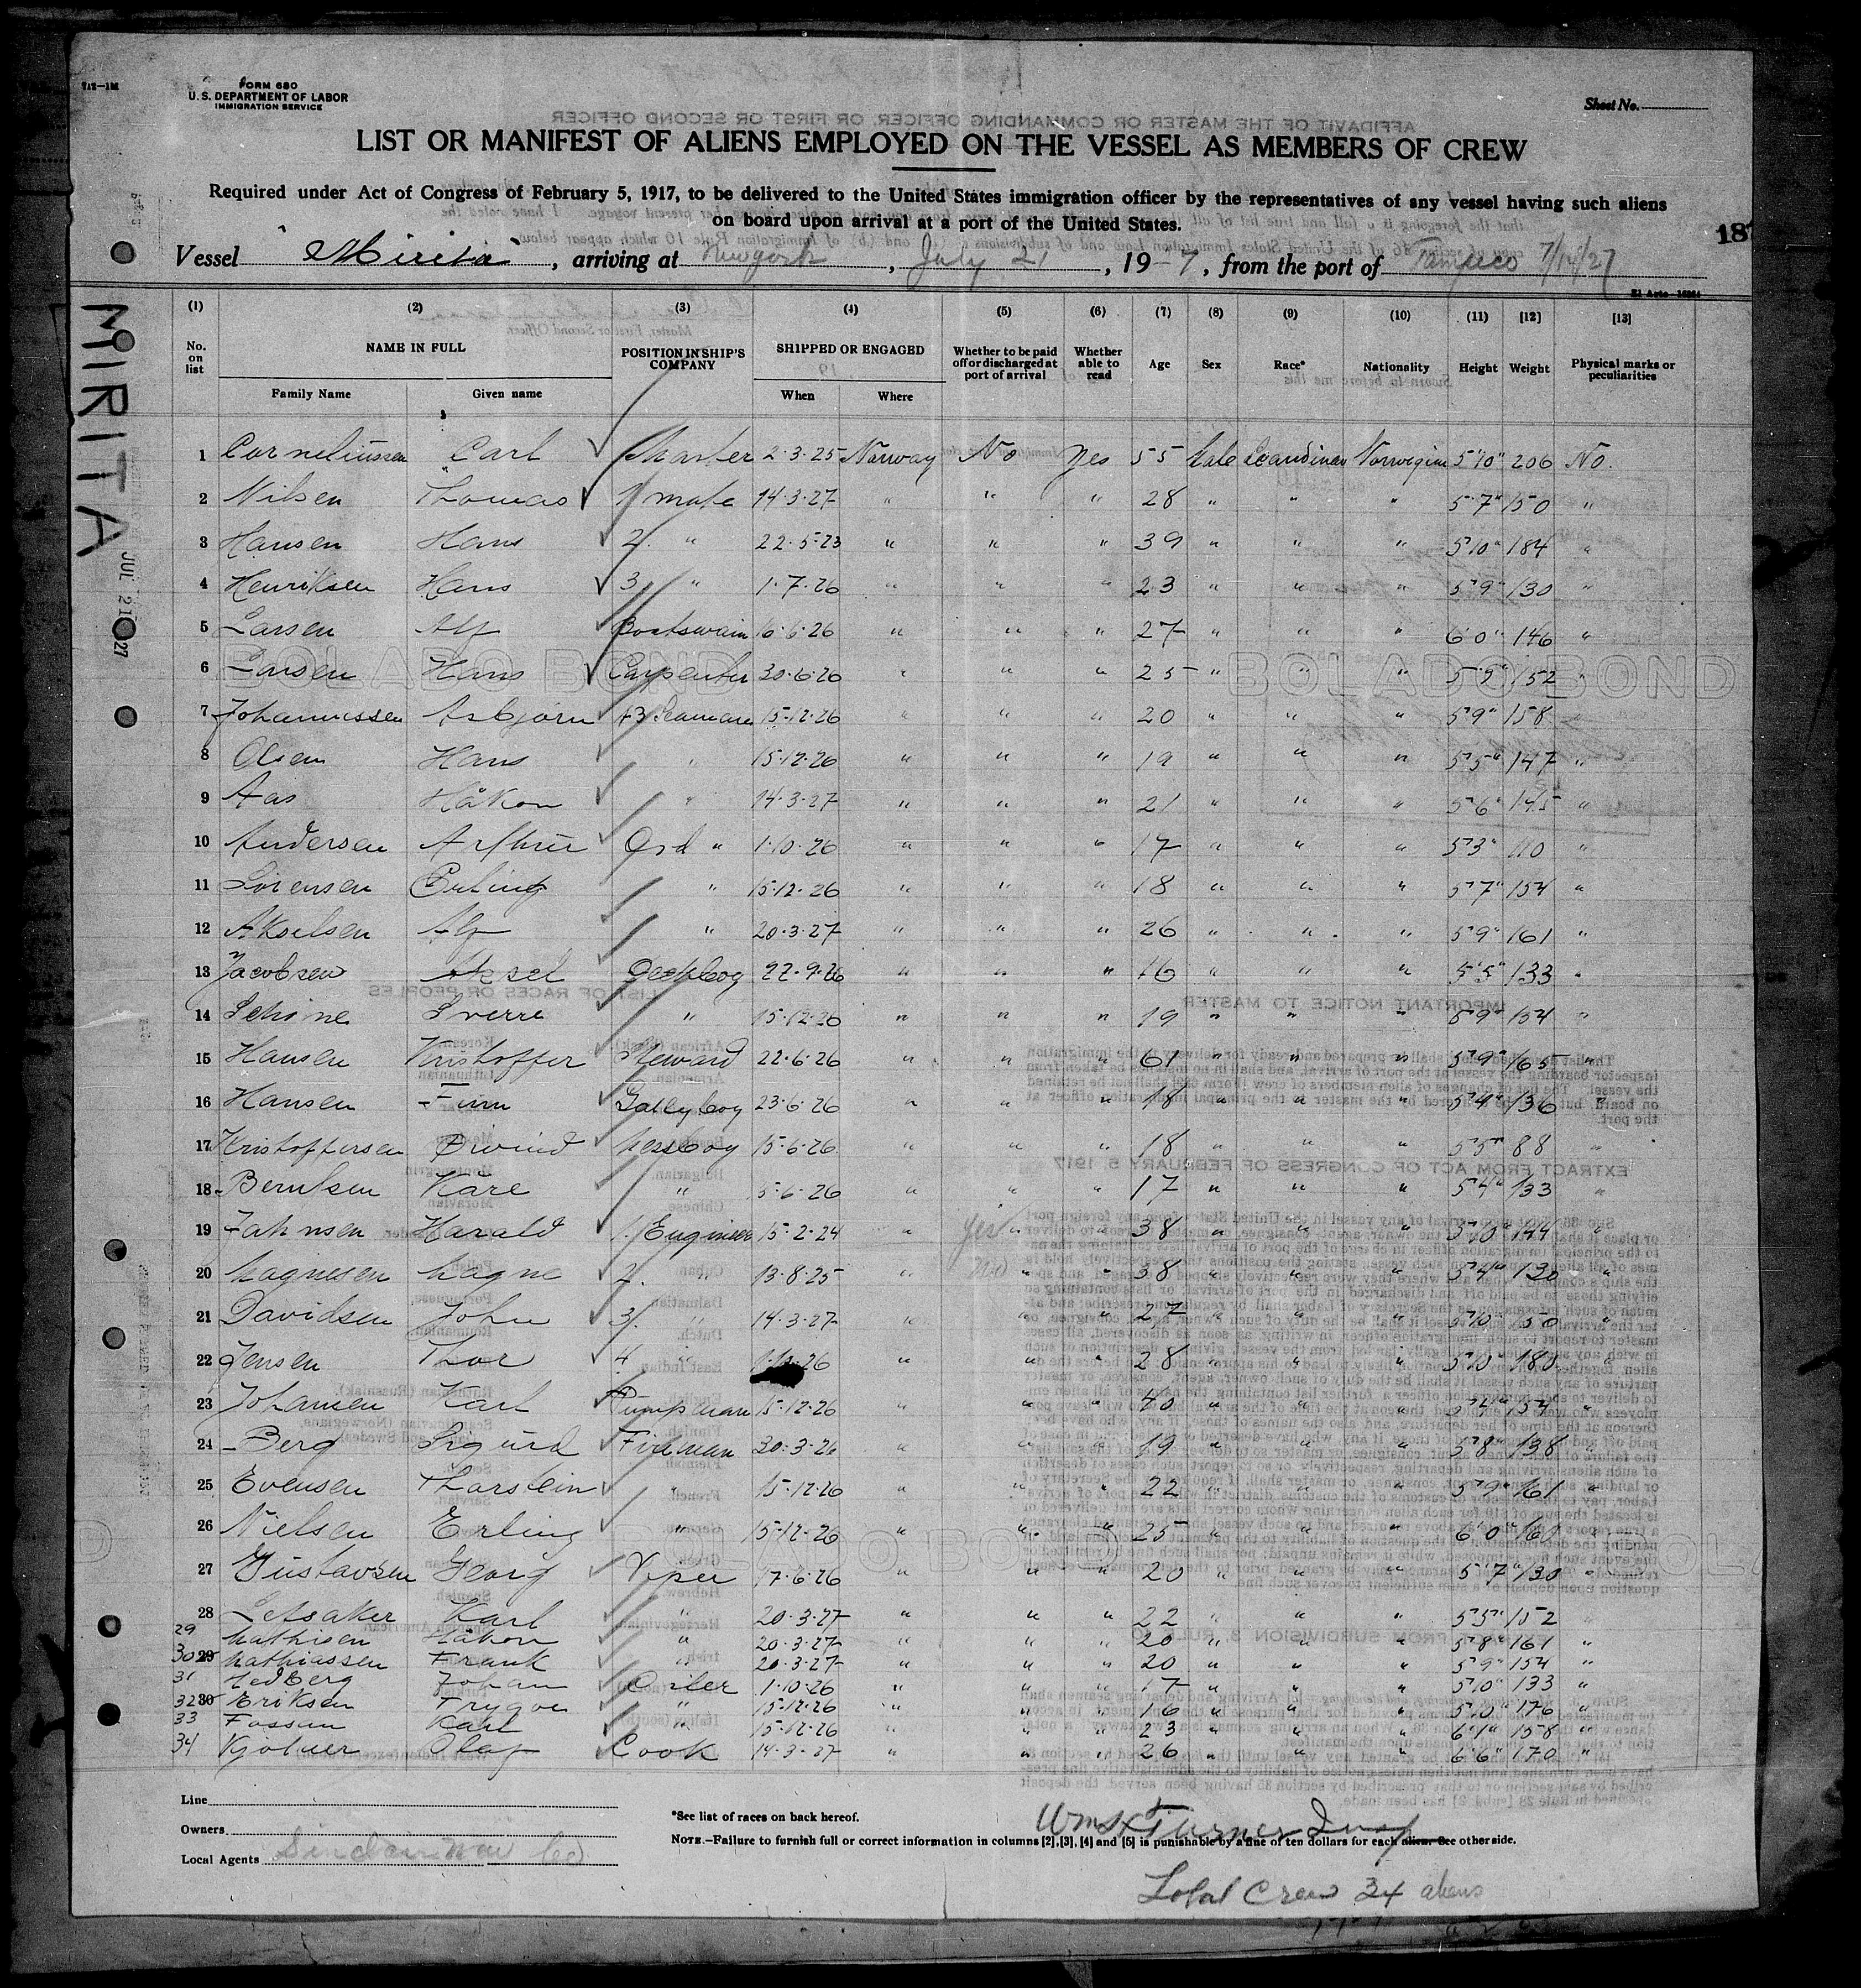 712—1M
FORM 680
U. S. DEPARTMENT OF LABOR
IMMIGRATION SERVICE
Sheet No.
LIST OR MANIFEST OF ALIENS EMPLOYED ON THE VESSEL AS MEMBERS OF CREW
Required under Act of Congress of February 5, 1917, to be delivered to the United States immigration officer by the representatives of any vessel having such aliens
on board upon arrival at a port of the United States.
187
Vessel "Mirita", arriving at New york, July 21, 19-7, from the port of Tampico 7/14/27
MIRITA
JUL 21 1927
(1) (2) (3) (4) (5) (6) (7) (8) (9) (10) (11) [12] [13]
No. on list NAME IN FULL POSITION IN SHIP'S COMPANY SHIPPED OR ENGAGED Whether to be paid off or discharged at port of arrival Whether able to read Age Sex Race* Nationality Height Weight Physical marks or peculiarities
Family Name Given name When Where
1 Corneliussen Carl Master 2-3-25 Norway No Yes 55 Male Scandinav Norwegian 5'10" 206 No.
2 Nilsen Thomas 1 mate 14-3-27 " " " 28 " " " 5'7" 150 "
3 Hansen Hans 2. " 22-5-23 " " " 39 " " " 5'10" 184 "
4 Henriksen Hans 3 " 1-7-26 " " " 23 " " " 5'9" 130 "
5 Larsen Alf Boatswain 16-6-26 " " " 27 " " " 6'0" 146 "
6 Larsen Hans Carpenter 30-6-26 " " " 25 " " " 5'9" 152 "
7 Johannessen Asbjørn AB Seaman 15-12-26 " " " 20 " " " 5'9" 158 "
8 Olsen Hans " 15-12-26 " " " 19 " " " 5'5" 147 "
9 Aas Håkon " 14-3-27 " " " 21 " " " 5'6" 145 "
10 Andersen Arthur Ord " 1-10-26 " " " 17 " " " 5'3" 110 "
11 Sørensen Erling " 15-12-26 " " " 18 " " " 5'7" 154 "
12 Akselsen Alf " 20-3-27 " " " 26 " " " 5'9" 161 "
13 Jacobsen Aksel Deckboy 22-9-26 " " " 16 " " " 5'5" 133 "
14 Schine Sverre " 15-12-26 " " " 19 " " " 5'9" 154 "
15 Hansen Kristoffer Steward 22-6-26 " " " 61 " " " 5'9" 165 "
16 Hansen Finn Galleyboy 23-6-26 " " " 18 " " " 5'4" 136 "
17 Kristoffersen Øivind Messboy 15-6-26 " " " 18 " " " 5'5" 88 "
18 Berntsen Kåre " 5-6-26 " " " 17 " " " 5'4" 133 "
19 Jahnsen Harald 1. Engineer 15-2-24 " Yes " 38 " " " 5'10" 144 "
20 Magnesen Magne 2. " 13-8-25 " No " 38 " " " 5'4" 130 "
21 Davidsen John 3. " 14-3-27 " " " 27 " " " 5'10" 150 "
22 Jensen Thor 4 " " " " 28 " " " 5'10" 180 "
23 Johansen Karl Pumpman 15-12-26 " " " 40 " " " 5'4" 154 "
24 Berg Sigurd Fireman 30-3-26 " " " 19 " " " 5'8" 138 "
25 Evensen Thorstein " 15-12-26 " " " 22 " " " 5'9" 161 "
26 Nielsen Erling " 15-12-26 " " " 25 " " " 6'0" 161 "
27 Gustavsen Georg Viper 17-6-26 " " " 20 " " " 5'7" 130 "
28 Letsaker Karl " 20-3-27 " " " 22 " " " 5'5" 152 "
29 Mathisen Håkon " 20-3-27 " " " 20 " " " 5'8" 161 "
30 29 Mathiassen Frank " 20-3-27 " " " 20 " " " 5'9" 154 "
31 Hedberg Johan Oiler 1-10-26 " " " 17 " " " 5'10" 133 "
32 30 Eriksen Trygve " 15-12-26 " " " 16 " " " 5'10" 176 "
33 Fossum Karl " 15-12-26 " " " 23 " " " 6'1" 158 "
34 Kjølner Olaf Cook 14-3-27 " " " 26 " " " 6'6" 170 "
BOLADO BOND
BOLADO BOND
BOLADO BOND
Line
Owners
Local Agents Sinclair Nav Co
*See list of races on back hereof.
Wm S. Turner Insp
NOTE.—Failure to furnish full or correct information in columns [2], [3], [4] and [5] is punishable by a fine of ten dollars for each alien. See other side.
Total Crew 34 aliens